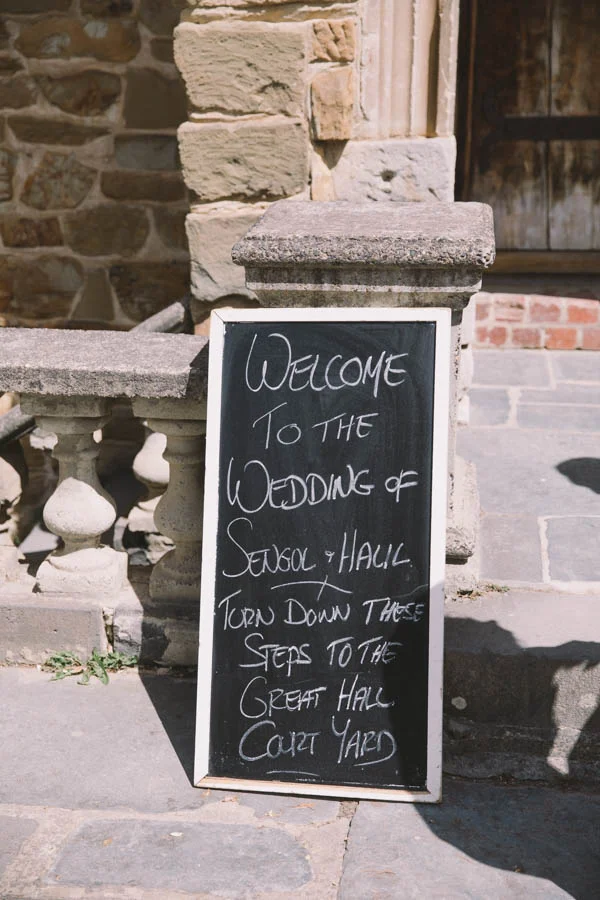 WELCOME
TO THE
WEDDING OF
SENGOL & HALIL
TURN DOWN THESE
STEPS TO THE
GREAT HALL
COURT YARD